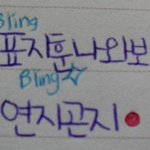 Bling
표지훈나와보
Bling☆
연지곤지